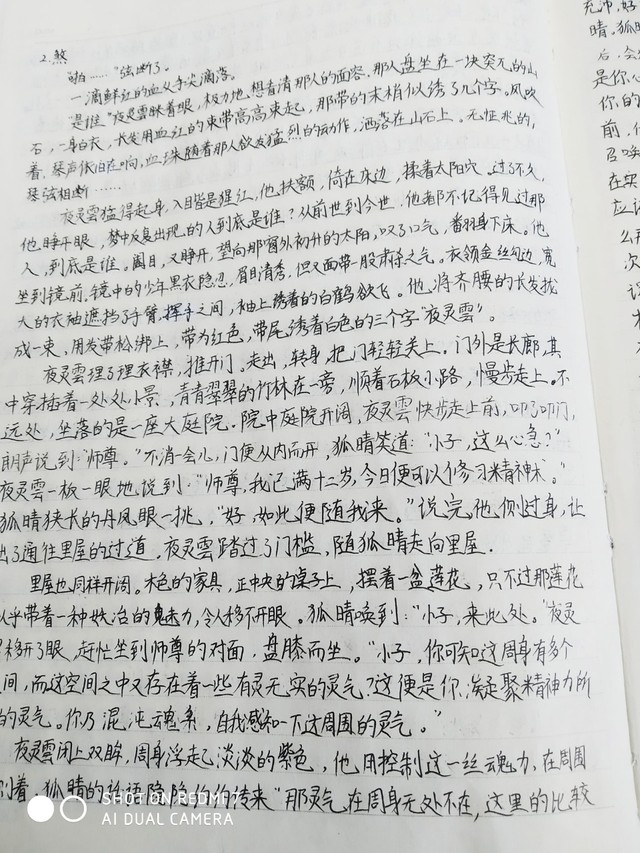 2.煞
“啪……”弦断了。
一滴鲜红的血从手尖滴落。
“是谁”夜灵雲眯着眼,极力地想看清那人的面容,那人盘坐在一块突兀的山
石,一身白衣,长发用血红的束带高高束起,那带的末梢似诱了几个字。风吹
着,琴声依旧在响,血珠随着那人欲发猛烈的动作,洒落在山石上。无怔兆的,
琴弦相断……
夜灵雲猛得起身,入目皆是猩红,他扶额,倚在床边,揉着太阳穴。过了不久,
他睁开眼,梦中反复出现的人到底是谁?从前世到今世,他都不记得见过那
人,到底是谁。阖目,又睁开,望向那窗外初升的太阳,叹了口气,翻身下床。他
坐到镜前,镜中的少年黑衣隐忍,眉目清秀,但又面带一股肃杀之气。衣领金丝勾边,宽
大的衣袖遮挡了手臂,挥手之间,袖上诱着的白鹤欲飞。他将齐腰的长发拢
成一束,用发带松绑上,带为红色,带尾诱着白色的三个字“夜灵雲”。
夜灵雲理了理衣襟,推开门,走出,转身,把门轻轻关上。门外是长廊,其
中穿插着一处处小景,青青翠翠的竹林在一旁,顺着石板小路,慢步走上。不
远处,坐落的是一座大庭院。院中庭院开阔,夜灵雲快步走上前,叩了叩门,
朗声说到:“师尊。”不消一会儿,门便从内而开,狐晴笑道:“小子,这么心急?”
夜灵雲一板一眼地说到:“师尊,我已满十二岁,今日便可以修习精神术。”
狐晴狭长的丹凤眼一挑,“好,如此便随我来。”说完,他侧过身,让
出了通往里屋的过道,夜灵雲踏过了门槛,随狐晴走向里屋.
里屋也同样开阔。木色的家具,正中央的桌子上,摆着一盆莲花,只不过那莲花
似乎带着一种妖冶的魅力,令人移不开眼。狐晴唤到:“小子,来此处。”夜灵
移开了眼,赶忙坐到师尊的对面,盘膝而坐。“小子,你可知这周身有多个
间,而这空间之中又存在着一些有灵无实的灵气?这便是你凝聚精神力所
的灵气。你乃混沌魂系,自我感知一下这周围的灵气。”
夜灵雲闭上双眸,周身浮起淡淡的紫色,他用控制这一丝魂力,在周围
着,狐晴的话语隐隐约约传来“那灵气在周身无处不在,这里的比较
SHOT ON REDMI 7
AI DUAL CAMERA